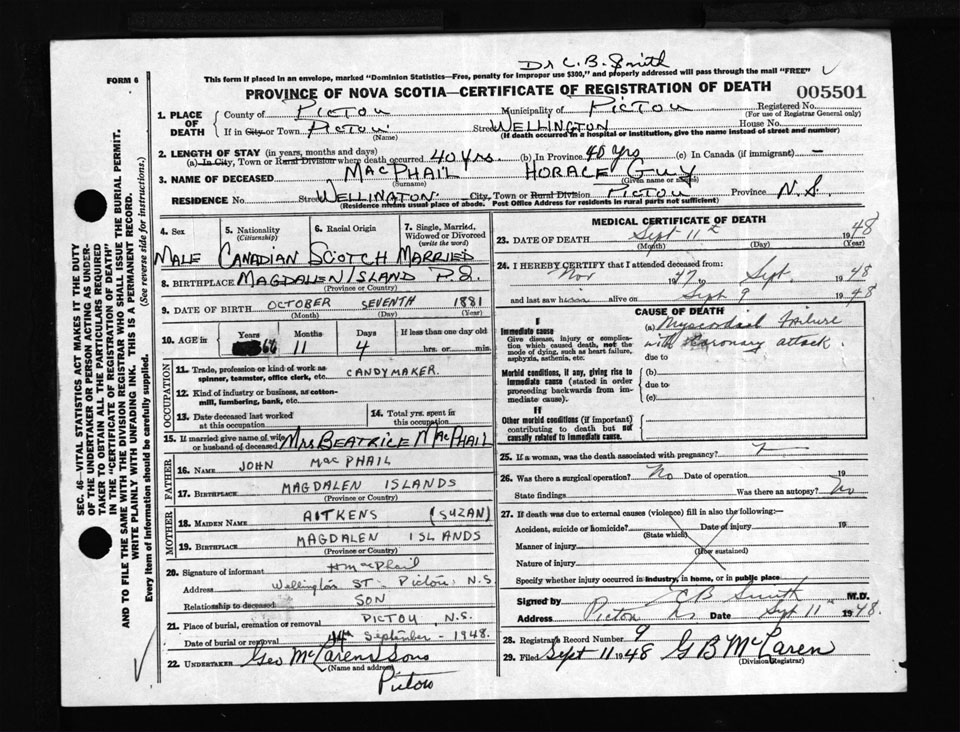 Dr C. B. Smith
FORM 6
This form if placed in an envelope, marked "Dominion Statistics—Free, penalty for improper use $300," and properly addressed will pass through the mail "FREE"
PROVINCE OF NOVA SCOTIA—CERTIFICATE OF REGISTRATION OF DEATH
005501
1. PLACE OF DEATH
County of PICTOU Municipality of PICTOU Registered No.
(For use of Registrar General only)
If in City or Town PICTOU Street WELLINGTON House No.
(Name) (If death occurred in a hospital or institution, give the name instead of street and number)
2. LENGTH OF STAY (in years, months and days)
(a) In City, Town or Rural Division where death occurred 40 Yrs. (b) In Province 40 yrs (c) In Canada (if immigrant) —
3. NAME OF DECEASED MACPHAIL HORACE Guy
(Surname) (Given name or names)
RESIDENCE No. Street WELLINGTON City, Town or Rural Division PICTOU Province N.S.
(Residence means usual place of abode. Post Office Address for residents in rural parts not sufficient)
4. Sex
MALE
5. Nationality
(Citizenship)
CANADIAN
6. Racial Origin
SCOTCH
7. Single, Married, Widowed or Divorced
(write the word)
MARRIED
8. BIRTHPLACE MAGDALEN ISLAND P.Q.
(Province or Country)
9. DATE OF BIRTH OCTOBER SEVENTH 1881
(Month) (Day) (Year)
10. AGE in Years Months Days If less than one day
66 11 4 hrs. or min.
OCCUPATION
11. Trade, profession or kind of work as spinner, teamster, office clerk, etc. CANDYMAKER.
12. Kind of industry or business, as cotton-mill, lumbering, bank, etc.
13. Date deceased last worked at this occupation
14. Total yrs. spent in this occupation
15. If married give name of wife or husband of deceased MRS BEATRICE MACPHAIL
FATHER
16. NAME JOHN MACPHAIL
17. BIRTHPLACE MAGDALEN ISLANDS
(Province or Country)
MOTHER
18. MAIDEN NAME AITKENS (SUZAN)
19. BIRTHPLACE MAGDALEN ISLANDS
(Province or Country)
20. Signature of informant H MacPhail
Address Wellington ST. Pictou N.S.
Relationship to deceased SON
21. Place of burial, cremation or removal PICTOU N.S.
Date of burial or removal 14th September - 1948.
22. UNDERTAKER Geo McLaren & Sons
(Name and address)
Pictou
MEDICAL CERTIFICATE OF DEATH
23. DATE OF DEATH Sept 11th 1948
(Month) (Day) (Year)
24. I HEREBY CERTIFY that I attended deceased from:
Nov 1947 to Sept. 1948
and last saw him alive on Sept 9 1948
CAUSE OF DEATH
I
Immediate cause
Give disease, injury or complication which caused death, not the mode of dying, such as heart failure, asphyxia, asthenia, etc.
(a) Myocardial failure
with Coronary attack.
due to
Morbid conditions, if any, giving rise to immediate cause (stated in order proceeding backwards from immediate cause).
(b)
due to
(c)
II
Other morbid conditions (if important) contributing to death but not causally related to immediate cause.
25. If a woman, was the death associated with pregnancy?
26. Was there a surgical operation? No Date of operation 19
State findings Was there an autopsy? No
27. If death was due to external causes (violence) fill in also the following:—
Accident, suicide or homicide? Date of injury 19
(State which)
Manner of injury
(How sustained)
Nature of injury
Specify whether injury occurred in industry, in home, or in public place
Signed by CB Smith M.D.
Address Pictou N.S. Date Sept 11th 1948.
28. Registrars Record Number 9
29. Filed Sept 11 1948 G B McLaren
(Division Registrar)
SEC. 46—VITAL STATISTICS ACT MAKES IT THE DUTY
OF THE UNDERTAKER OR PERSON ACTING AS UNDER-
TAKER TO OBTAIN ALL THE PARTICULARS REQUIRED
IN THE "CERTIFICATE OF REGISTRATION OF DEATH"
AND TO FILE THE SAME WITH THE DIVISION REGISTRAR WHO SHALL ISSUE THE BURIAL PERMIT.
WRITE PLAINLY WITH UNFADING INK. THIS IS A PERMANENT RECORD.
Every item of information should be carefully supplied. (See reverse side for instructions.)